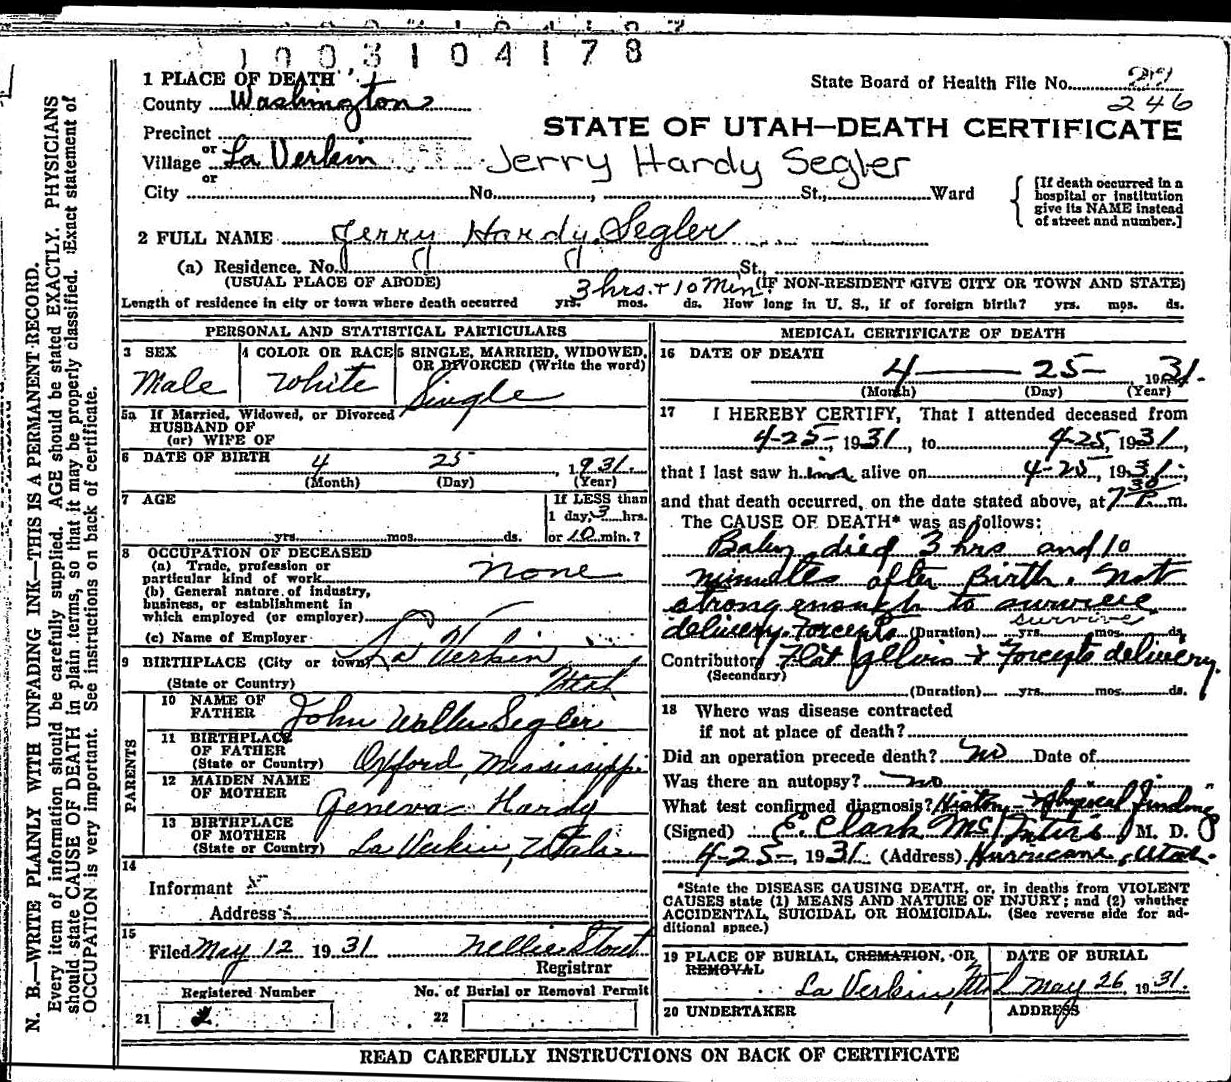 1003104178
1 PLACE OF DEATH
State Board of Health File No.
246
County Washington
STATE OF UTAH—DEATH CERTIFICATE
Precinct
or
Village La Verkin Jerry Hardy Segler
or
City No. , St., Ward
[If death occurred in a
hospital or institution
give its NAME instead
of street and number.]
2 FULL NAME Jerry Hardy Segler
(a) Residence. No. St.,
(USUAL PLACE OF ABODE) 3 hrs. + 10 Min. (IF NON-RESIDENT GIVE CITY OR TOWN AND STATE)
Length of residence in city or town where death occurred yrs. mos. ds. How long in U. S., if of foreign birth? yrs. mos. ds.
PERSONAL AND STATISTICAL PARTICULARS
3 SEX 4 COLOR OR RACE 5 SINGLE, MARRIED, WIDOWED,
OR DIVORCED (Write the word)
Male White Single
5a If Married, Widowed, or Divorced
HUSBAND OF
(or) WIFE OF
6 DATE OF BIRTH 4 25 , 1931.
(Month) (Day) (Year)
7 AGE If LESS than
1 day, 3 hrs.
yrs. mos. ds. or 10 min.?
8 OCCUPATION OF DECEASED
(a) Trade, profession or
particular kind of work none
(b) General nature of industry,
business, or establishment in
which employed (or employer)
(c) Name of Employer
9 BIRTHPLACE (City or town) La Verkin
(State or Country) Utah
PARENTS
10 NAME OF
FATHER John Walter Segler
11 BIRTHPLACE
OF FATHER
(State or Country) Oxford, Mississippi
12 MAIDEN NAME
OF MOTHER Geneva Hardy
13 BIRTHPLACE
OF MOTHER
(State or Country) La Verkin, Utah
14
Informant
Address
15
Filed May 12 1931 Nellie Stout
Registrar
Registered Number No. of Burial or Removal Permit
21 2 22
MEDICAL CERTIFICATE OF DEATH
16 DATE OF DEATH
4 — 25 — 1931.
(Month) (Day) (Year)
17 I HEREBY CERTIFY, That I attended deceased from
4-25-, 1931, to 4-25, 1931,
that I last saw him alive on 4-25, 1931;
and that death occurred, on the date stated above, at 7 30 P. m.
The CAUSE OF DEATH* was as follows:
Baby died 3 hrs and 10
minutes after Birth. Not
strong enough to survive
survive
delivery. Forcepts (Duration) yrs. mos. ds.
Contributory Flat pelvis + Forcepts delivery.
(Secondary)
(Duration) yrs. mos. ds.
18 Where was disease contracted
if not at place of death?
Did an operation precede death? No Date of
Was there an autopsy? no
What test confirmed diagnosis? History + physical finding
(Signed) E. Clark McIntire M. D.
4-25-, 1931 (Address) Hurricane, Utah.
*State the DISEASE CAUSING DEATH, or, in deaths from VIOLENT
CAUSES state (1) MEANS AND NATURE OF INJURY; and (2) whether
ACCIDENTAL, SUICIDAL OR HOMICIDAL. (See reverse side for ad-
ditional space.)
19 PLACE OF BURIAL, CREMATION, OR
REMOVAL
La Verkin, Utah
DATE OF BURIAL
May 26 1931.
20 UNDERTAKER ADDRESS
READ CAREFULLY INSTRUCTIONS ON BACK OF CERTIFICATE
N. B.—WRITE PLAINLY WITH UNFADING INK—THIS IS A PERMANENT RECORD.
Every item of information should be carefully supplied. AGE should be stated EXACTLY. PHYSICIANS
should state CAUSE OF DEATH in plain terms, so that it may be properly classified. Exact statement of
OCCUPATION is very important. See instructions on back of certificate.